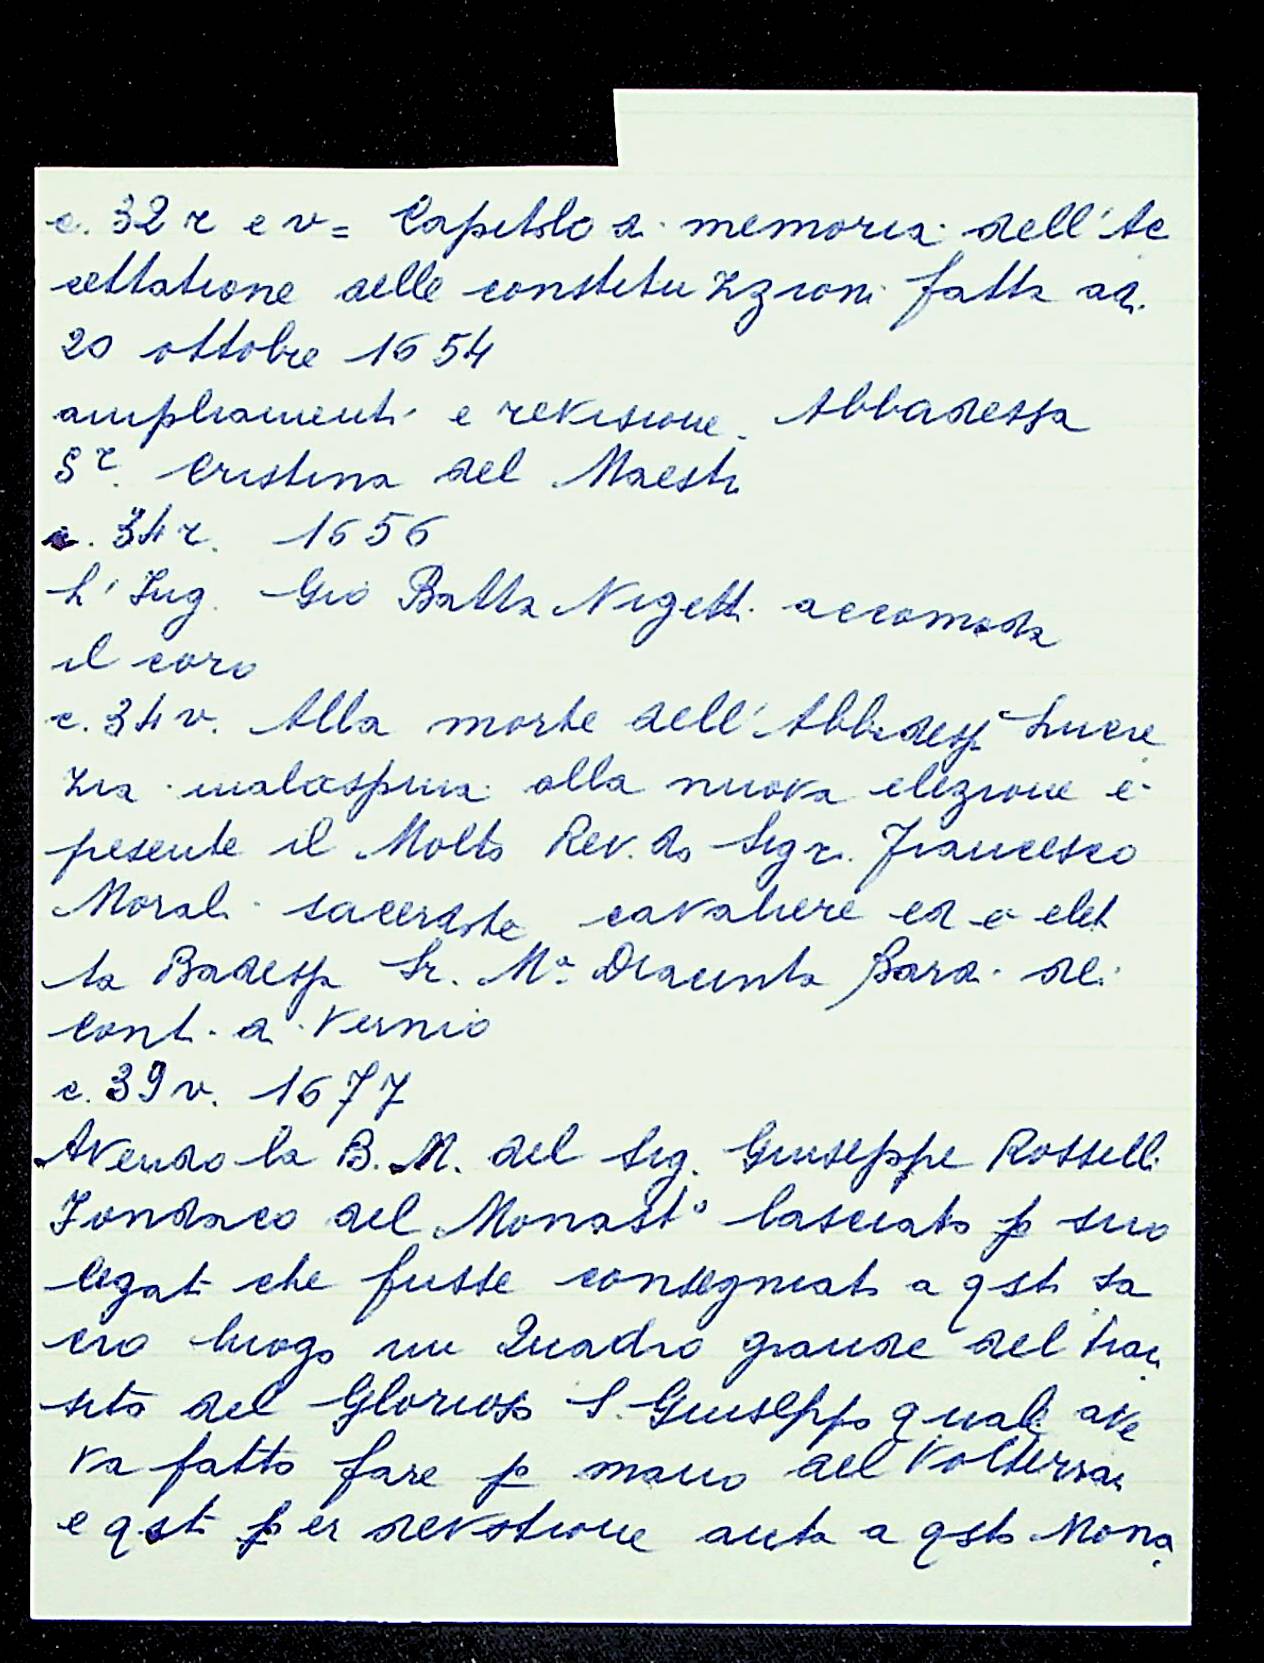 c. 32 r e v = Capitolo di memoria dell'Ac
cettatione delle constituzzioni fatta adi
20 ottobre 1654
ampliamenti e revisione. Abbadessa
Sr. Cristina del Maestro
c. 34 r. 1656
L'Ing. Gio Batta Nigetti accomoda
il coro
c. 34 v. Alla morte dell'Abbadessa Lucre
zia malaspina alla nuova elezione è
presente il Molto Rev.do Sigr. Francesco
Morali sacerdote cavaliere ed è elet
ta Badessa Sr. Mª Diacinta Bardi dei
Conti di Vernio
c. 39 v. 1677
Avendo la B. M. del Sig. Giuseppe Rosselli
Fondaco del Monastº lasciato p suo
legati che fusse consegniato a qsto sa
cro luogo un Quadro grande del tran
sito del Glorioso S. Giuseppo quali ave
va fatto fare p mano del Volterran
e qsti per devotione auta a qsto Mona